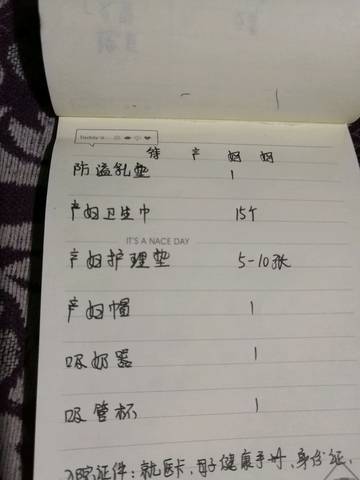 待 产 妈 妈
防溢乳垫 1
产妇卫生巾 15个
IT'S A NACE DAY
产妇护理垫 5-10张
产妇帽 1
吸奶器 1
吸管杯 1
入院证件:就医卡、母子健康手册、身份证、